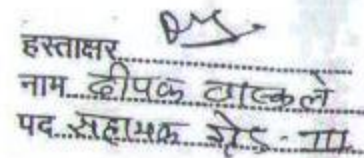 हस्ताक्षर
नाम दीपक वास्कले
पद सहायक ग्रेड - III